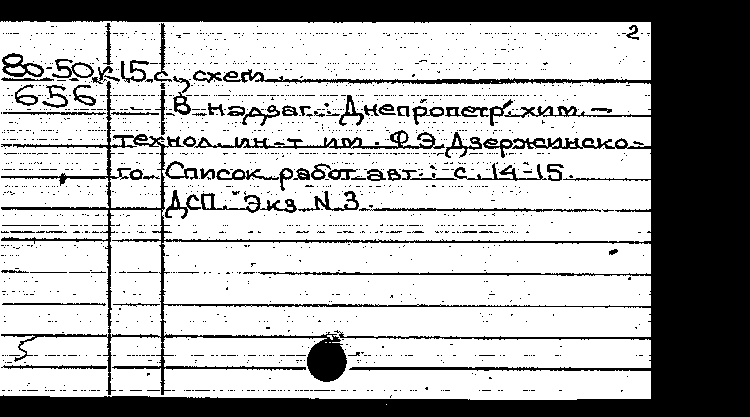 2
80-50к 15 с., схем.
656 В надзаг.: Днепропетр. хим.-
технол. ин-т им. Ф.Э.Дзержинско-
го. Список работ авт.: с. 14-15.
ДСП. Экз N 3.